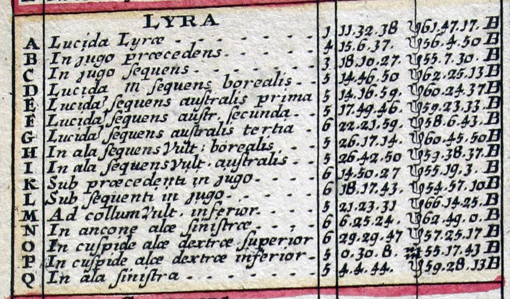 LYRA
A Lucida Lyræ 1 11.32.38 ♑ 61.47.17.B
B In jugo præcedens 4 15.6.37. ♑ 56.4.50 B
C In jugo sequens 3 18.10.27. ♑ 55.7.30.B
D Lucidā in sequens borealis 5 14.46.50 ♑ 62.25.13 B
E Lucidā sequens australis prima 5 14.16.59. ♑ 60.24.37 B
F Lucidā sequens austr. secunda 5 17.49.46. ♑ 59.23.33 B
G Lucidā sequens australis tertia 6 22.21.59. ♑ 58.6.43.B
H In ala sequens Vult: borealis 5 26.17.14. ♑ 60.45.50 B
I In ala sequens Vult. australis 5 26.42.50 ♑ 53.38.37 B
K Sub præcedenti in jugo 6 14.50.27 ♑ 55.19.3.B
L Sub sequenti in jugo 6 18.17.43. ♑ 54.57.10 B
M Ad collum Vult. inferior 5 21.23.31 ♑ 66.14.25.B
N In ancone alæ sinistræ 6 6.25.24. ♑ 62.49.0.B
O In cuspide alæ dextræ superior 6 29.29.47 ♑ 57.25.17 B
P In cuspide alæ dextræ inferior 5 0.30.8. ♒ 55.17.43 B
Q In ala sinistra 5 4.4.44. ♑ 59.28.13 B